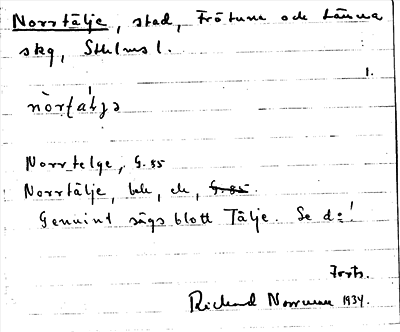 Norrtälje, stad, Frötuna och Länna
skg, Sthlms l.
1.
Norrtelge, G. 85
Norrtälje, bek, ek, G. 85.
Genuint sägs blott Tälje. Se d:o!
Forts.
Rickard Norrman 1934.